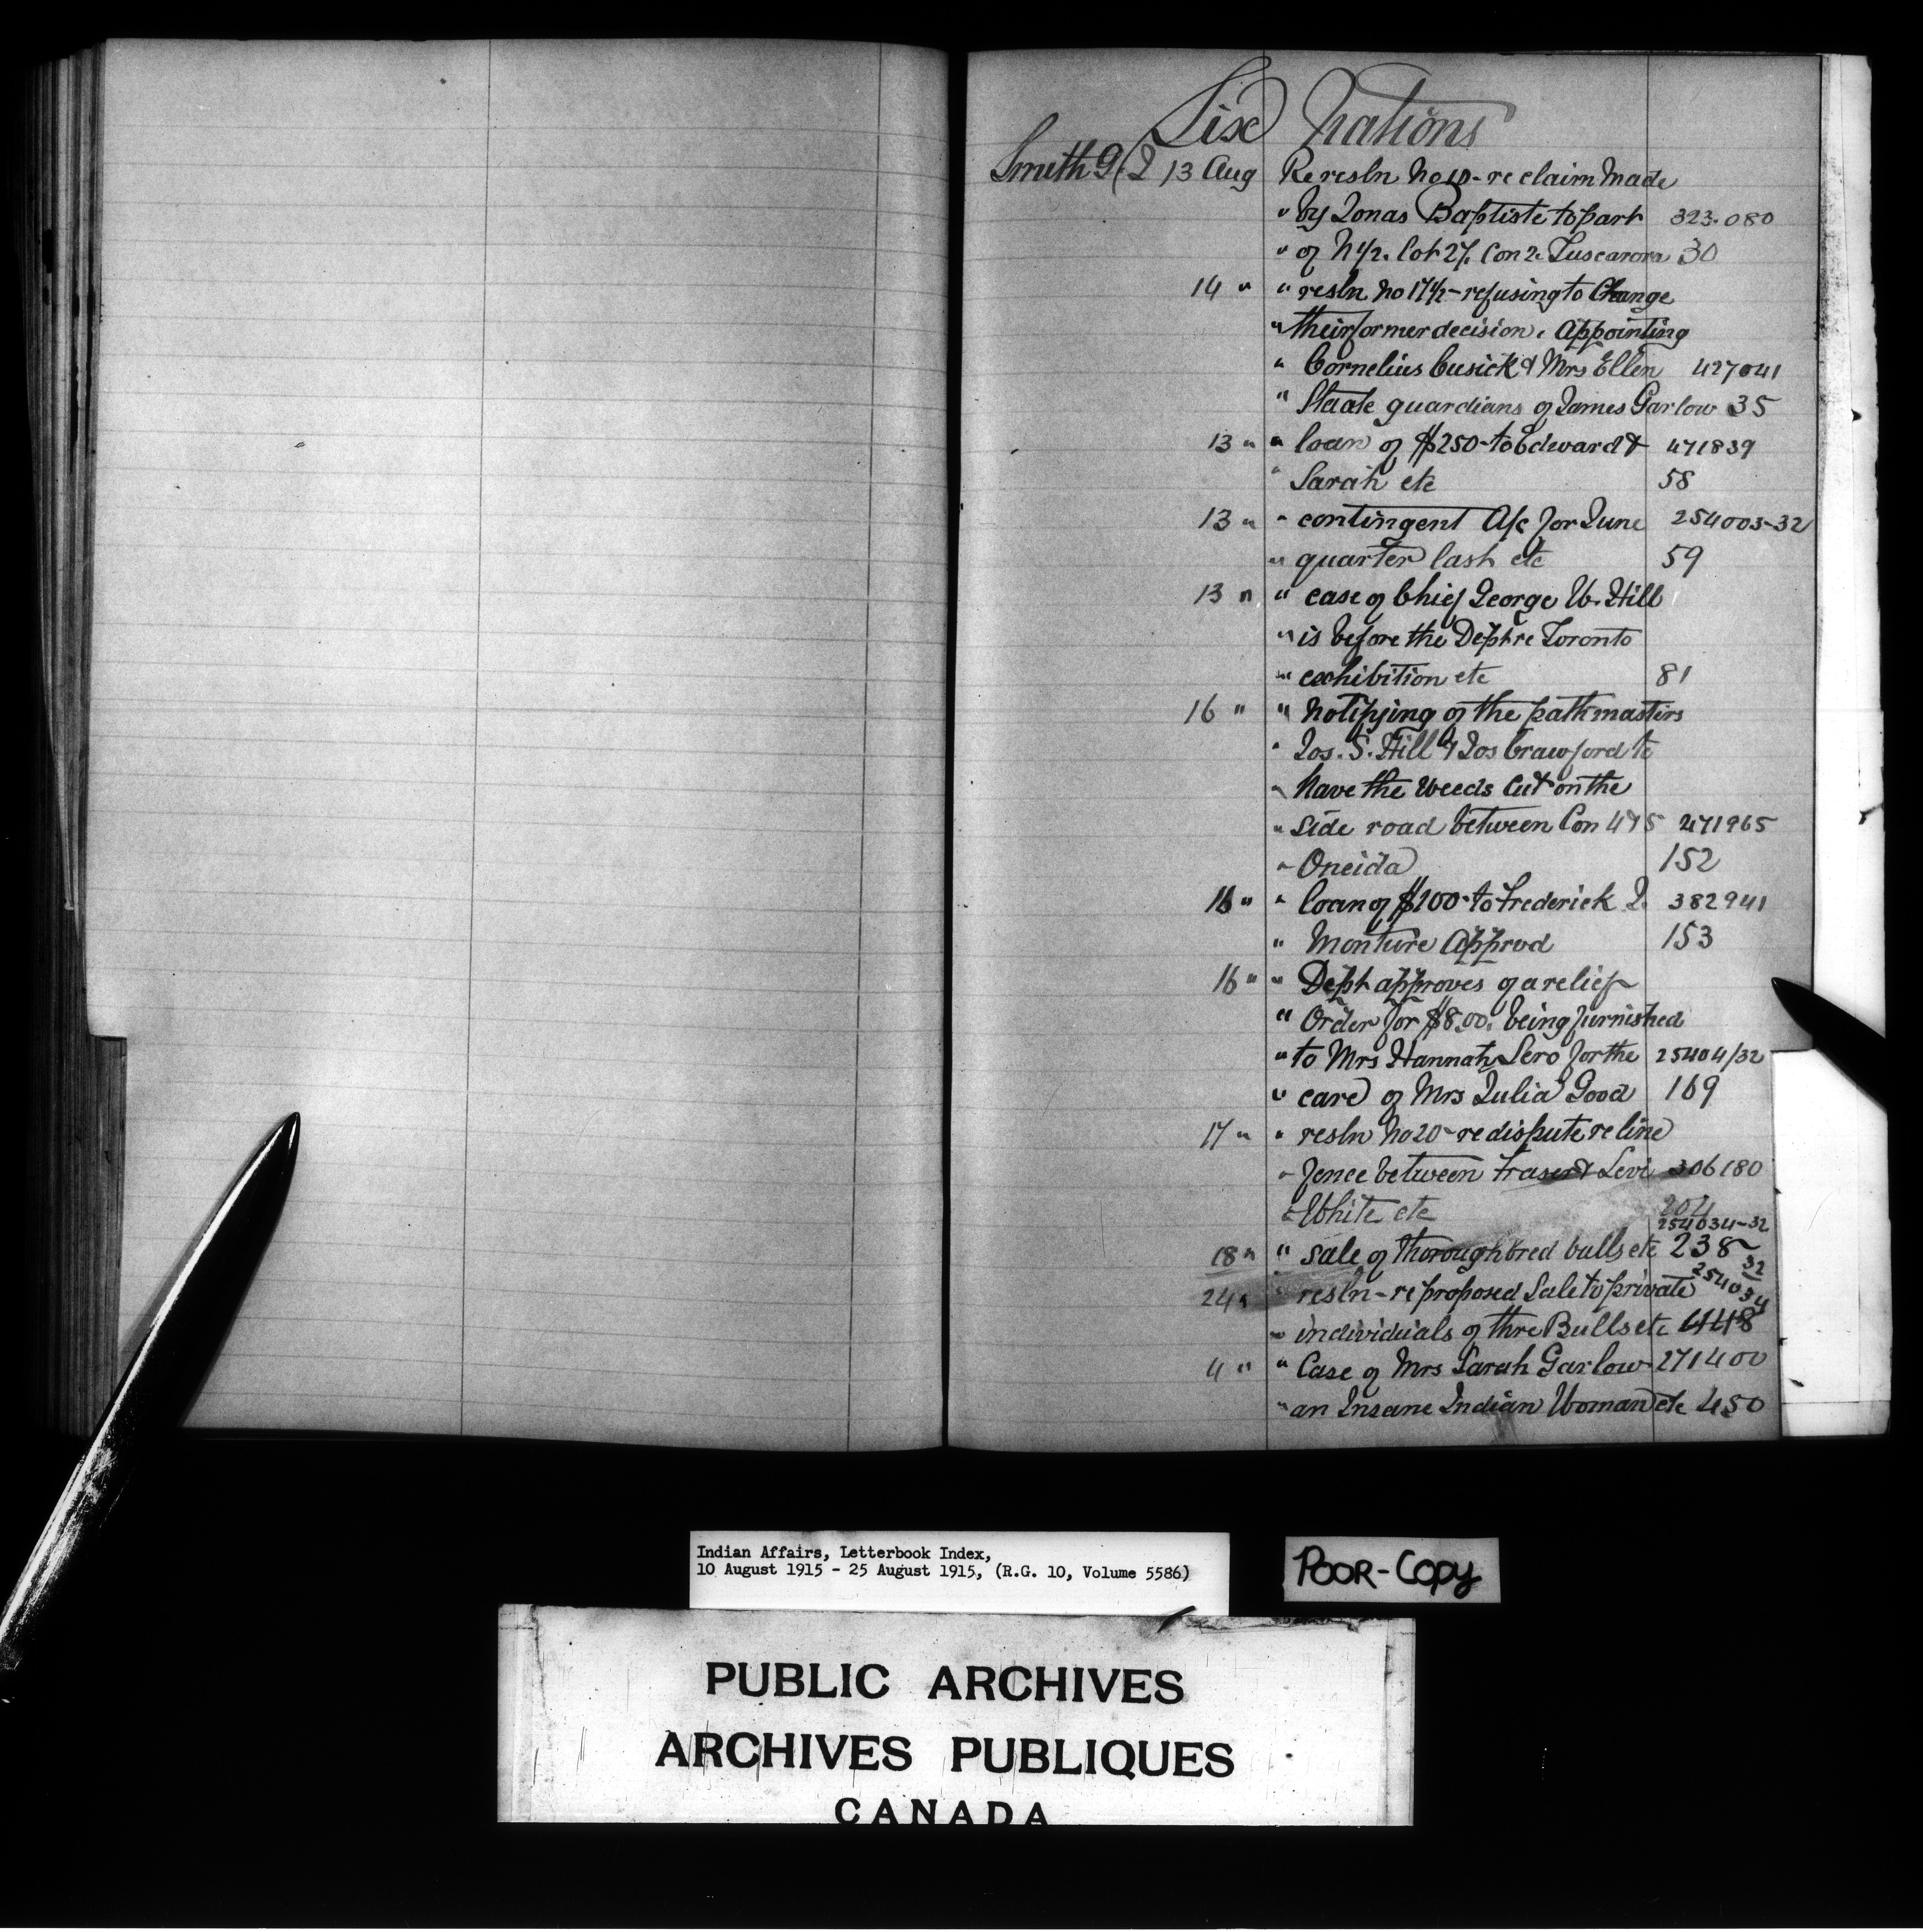 Six Nations
Smith G. J. 13 Aug Re resln No 10 - re claim Made
" by Jonas Baptiste to part 323.080
" of N 1/2. Lot 27. Con 2. Tuscarora 30
14 " " resln No 17 1/2 - refusing to Change
" their former decision. Appointing
" Cornelius Cusick & Mrs Ellen 427041
" Staate guardians of James Garlow 35
13 " " loan of $250 - to Edward & 471839
" Sarah etc 58
13 " " contingent A/c for June 254003-32
" quarter last etc 59
13 " " case of Chief George W. Hill
" is before the Dept re Toronto
" exhibition etc 81
16 " " Notifying of the pathmasters
" Jos. S. Hill & Jos Crawford to
" have the Weeds Cut on the
" Side road between Con 4 & 5 471965
" Oneida 152
16 " " loan of $100 - to Frederick J. 382941
" Monture Approd 153
16 " " Dept approves of a relief
" Order for $8.00. being furnished
" to Mrs Hannah Sero for the 25404/32
" care of Mrs Julia Good 169
17 " " resln No 20 - re dispute re line
" fence between Fraser & Levi 306180
" White etc 204
254034-32
18 " " sale of thoroughbred bulls etc 238
32
24 " " resln - re proposed Sale to private 254034
" individuals of thre Bulls etc 448
4 " " Case of Mrs Sarah Garlow 271400
" an Insane Indian Woman etc 450
Indian Affairs, Letterbook Index,
10 August 1915 - 25 August 1915, (R.G. 10, Volume 5586)
POOR-Copy
PUBLIC ARCHIVES
ARCHIVES PUBLIQUES
CANADA